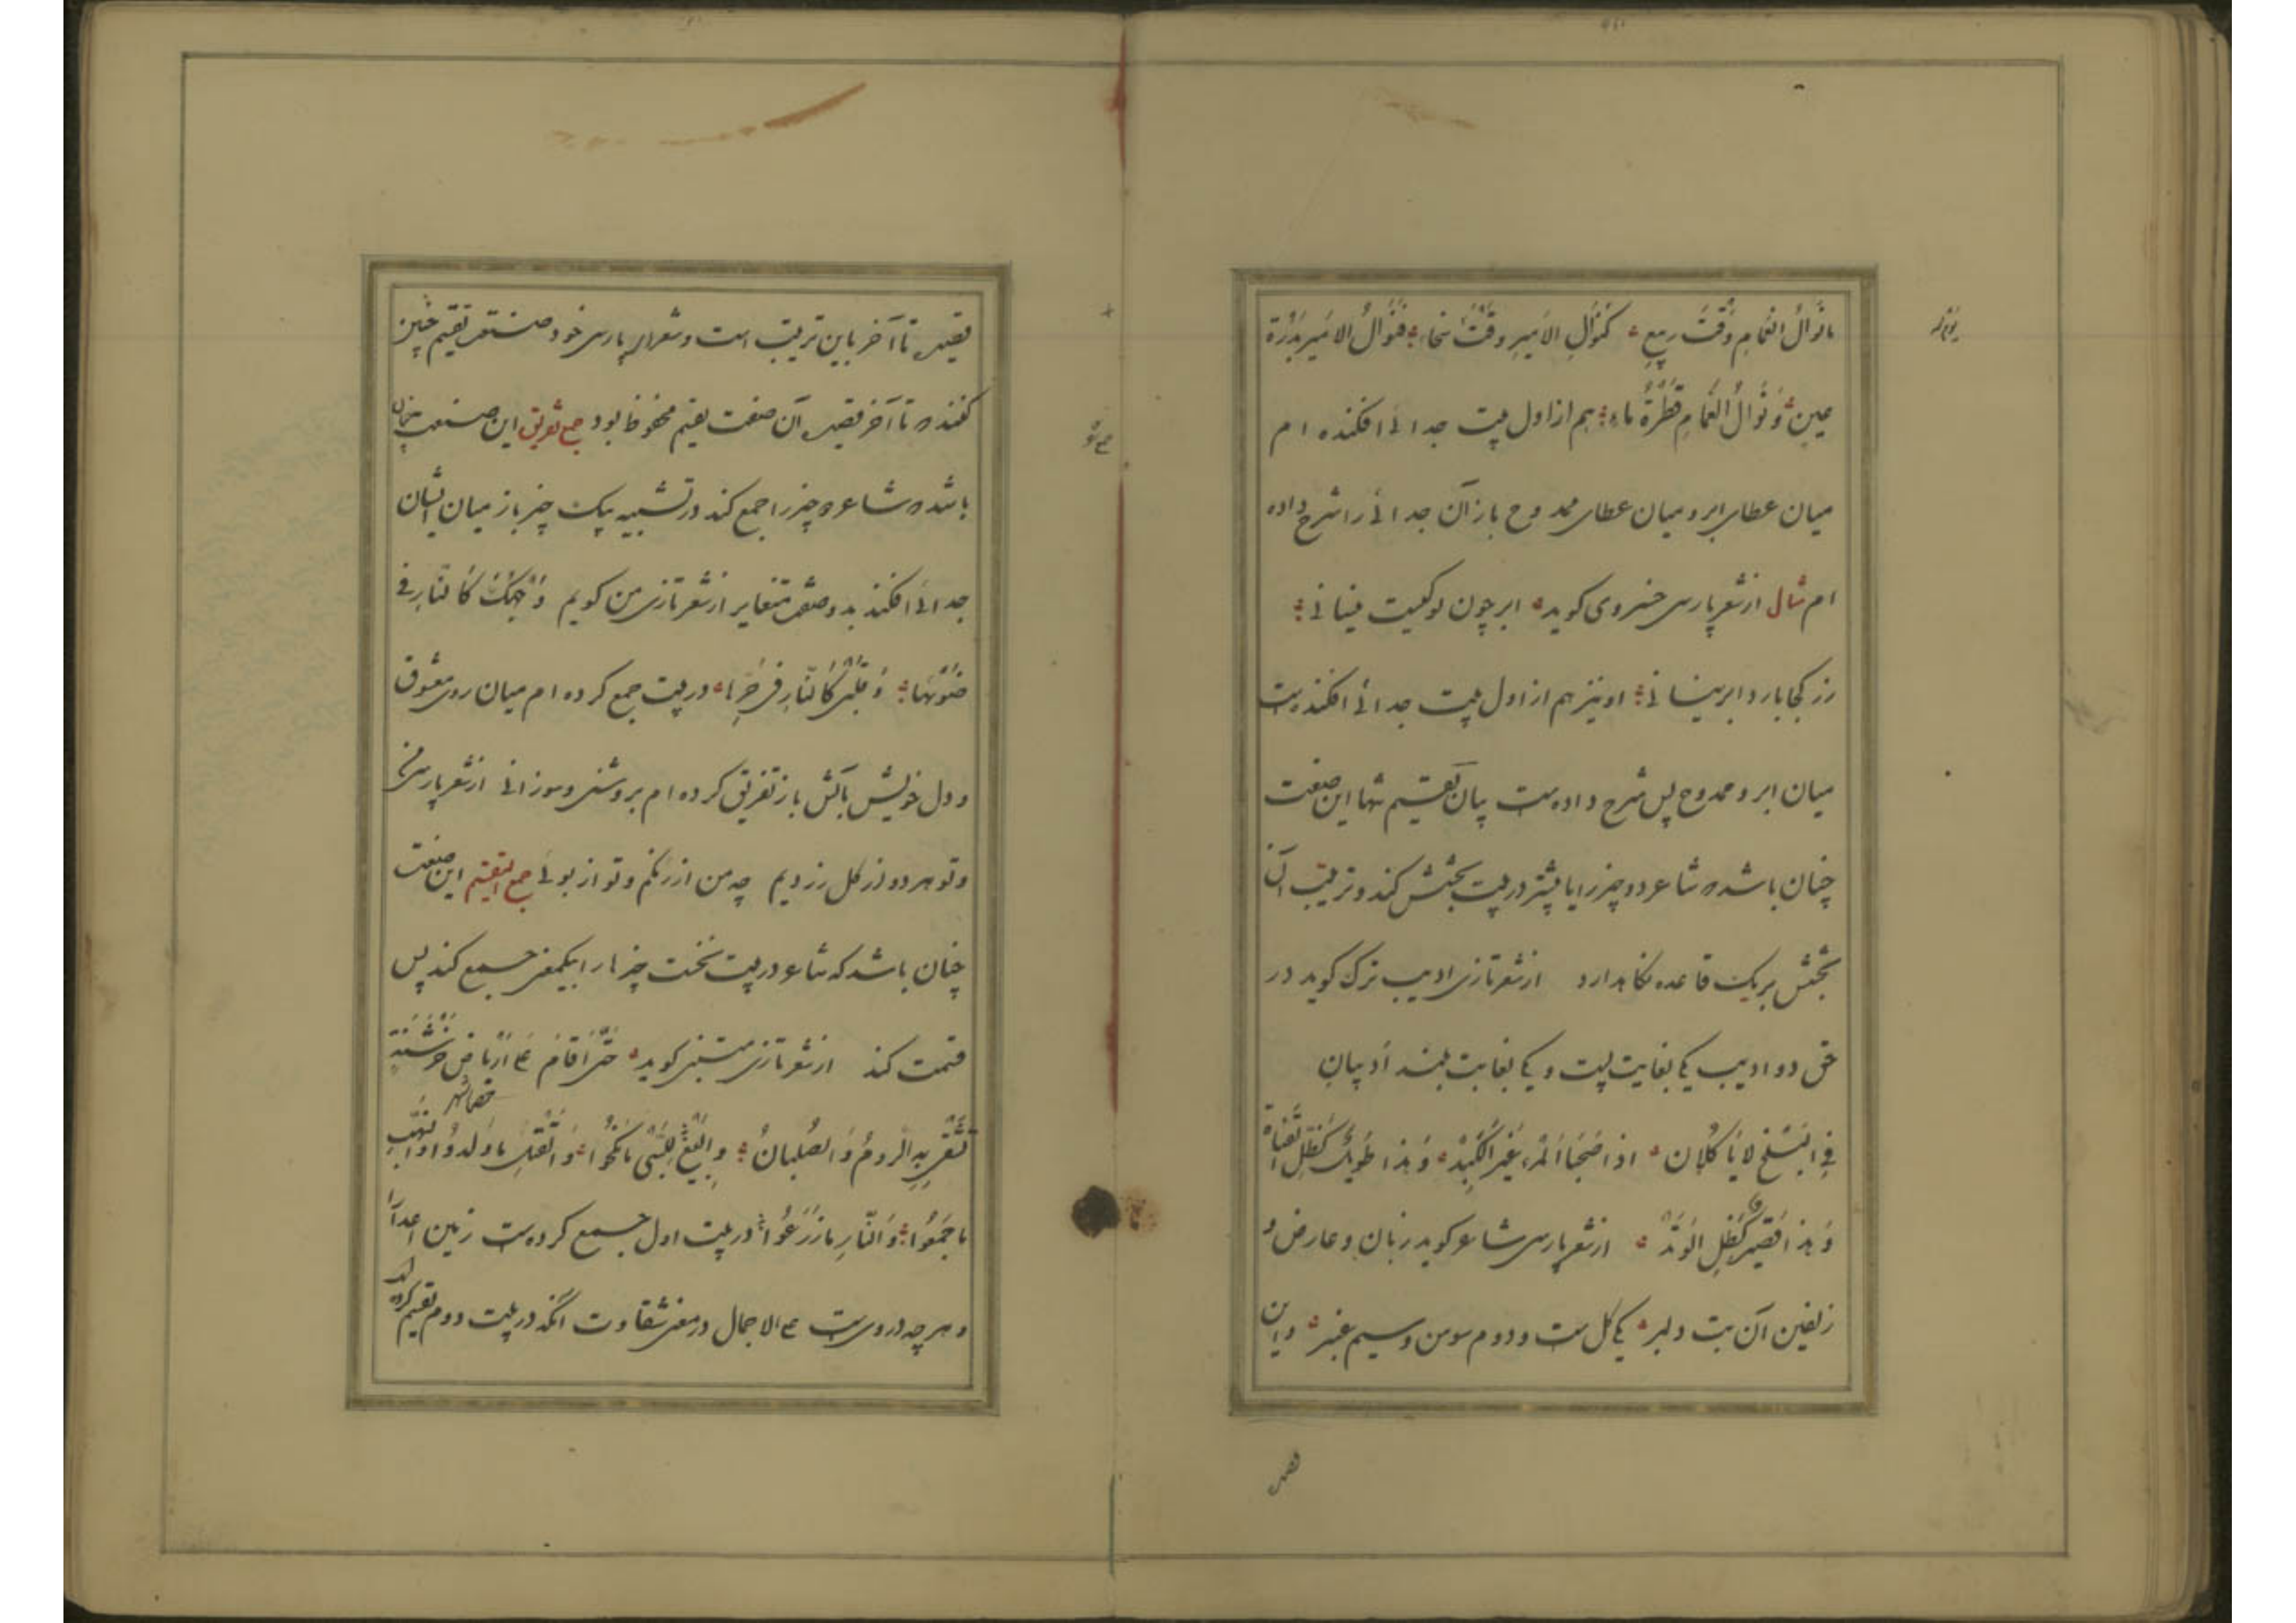 ما نَوالُ الغَمامِ وَقتَ رَبیعٍ کَنَوالِ الاَمیرِ وقتَ سَخاءِ فَنَوالُ الامَیرِ بَدْرَة
عینٍ وَنَوالُ الغَمامِ قطْرَةُ ماءِ هم از اول بیت جدائی افکنده ام
میان عطای ابر و میان عطای ممدوح باز آن جدائی را شرح داده
ام مثال از شعر پارسی خسروی کوید ابر چون توکیست نیسانی
زر کجا بارد ابر نیسانی او نیز هم از اول بیت جدائی افکنده ست
میان ابر و ممدوح پس شرح داده ست بیان تقسیم تنها این صنعت
چنان باشد ه شاعر دو چیز را یا بیشتر در بیت بخشش کند و ترتیب آن
بخشش بر یک قاعده نکاه دارد از شعر تازی ادیب ترک کوید در
حق دو ادیب یکی بغایت پست و یکی بغایت بلند اَدیبانِ
فِی البَلْخِ لایَاکُلانِ اذا صَحِبَا المَرْءَ غَیْرَ الکَبِدْ وَهذا طَویلٌ کَظِلِّ القَناةِ
وَهذا قَصیرٌ کَظِلِّ الوَتَدْ از شعر پارسی شاعر کوید زبان و عارض و
زلفین آن بت دلبر یکی کل ست و دوم سوسن و سیم عنبر و این
قصیده
قصیده تا آخر باین ترتیب است و شعرای پارسی خود صنعت تقسیم چنین
کنند ه تا آخر قصیده آن صنعت تقسیم محفوظ بود جمع تفریق این صنعت چنان
باشد ه شاعر دو چیز را جمع کند در تشبیه بیک چیز باز میان ایشان
جدائی افکند بدو صفت متغایر از شعر تازی من کویم وَجْهُکَ کَالنّارِ فی
ضَوْئِها وَقَلْبی کَالنّارِ فی حَرِّها در بیت جمع کرده ام میان روی معشوق
و دل خویش باتش باز تفریق کرده ام بروشنی و سوزانی از شعر پارسی من
و تو هر دو از کل زردیم چه من از رنکم و تو از بوئی جمع التقسیم این صنعت
چنان باشد که شاعر در بیت نخست چیزها را بیکمعنی جمع کند پس
قسمت کند از شعر تازی متنبی کوید حَتّی اَقامَ عَلی اَرْباضِ خَرْشَنَةٍ
تَشْقی بِهِ الرومُ وَالصُلبانُ وَالبِیَعُ لِلسَّبْیِ مانَکَحُوا وَالقَتْلِ ماوَلَدُوا وَالنَّهْبِ
ماجَمَعُوا وَالنّارِ مازَرَعُوا در بیت اول جمع کرده ست زمین اعدا را
و هر چه دروی ست علی الاجمال در معنی شقاوت آنکه در بیت دوم تقسیم کرده